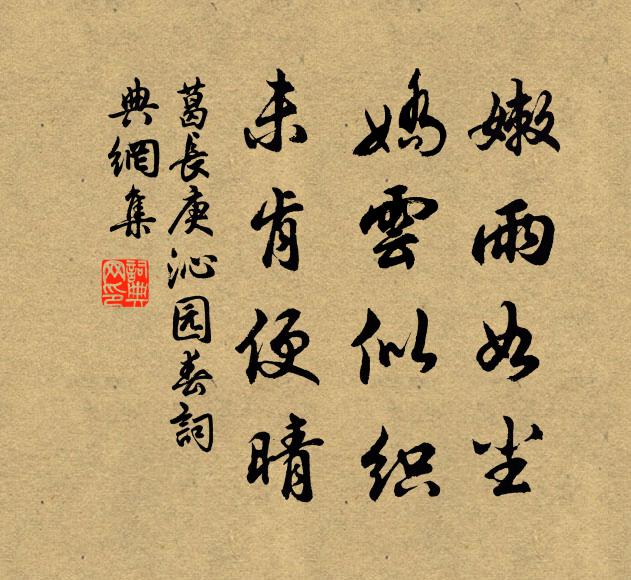 嫩雨如尘
娇雲似织
未肯便晴
葛長庚沁园春詞
典網集
詞典網印